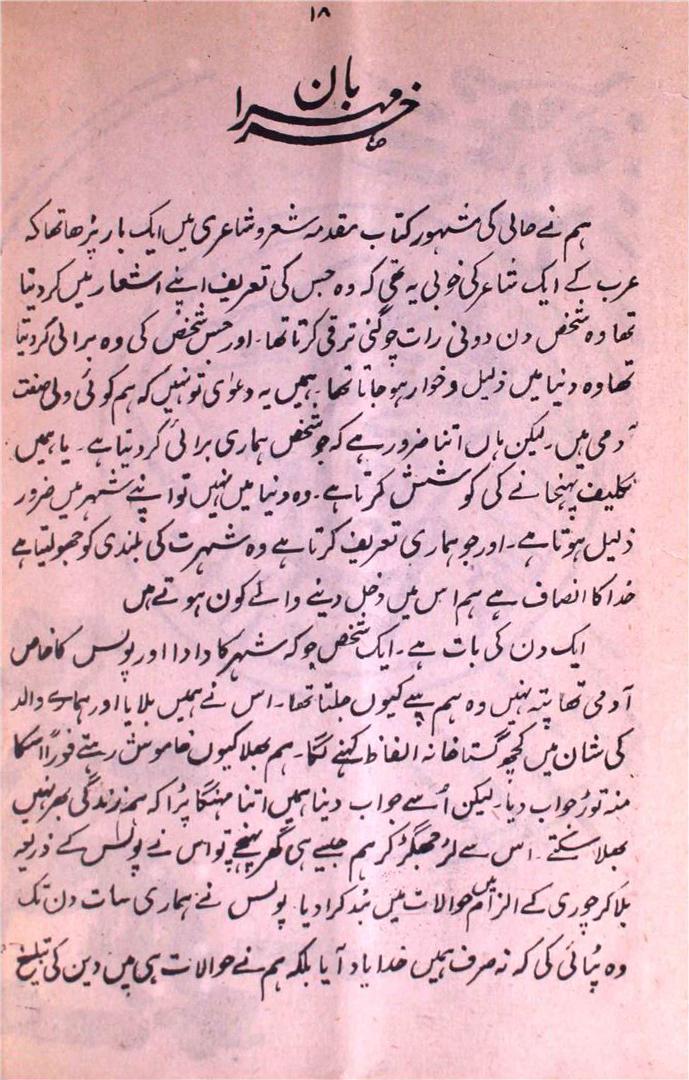 ۱۸
خر مہرا بان
ہم نے حالی کی مشہور کتاب مقدمہ شعر و شاعری میں ایک بار پڑھا تھا کہ
عرب کے ایک شاعر کی خوبی یہ تھی کہ وہ جس کی تعریف اپنے اشعار میں کر دیتا
تھا وہ شخص دن دونی رات چوگنی ترقی کرتا تھا۔ اور جس شخص کی وہ برائی کر دیتا
تھا وہ دنیا میں ذلیل و خوار ہو جاتا تھا۔ ہمیں یہ دعوٰی تو نہیں کہ ہم کوئی ولی صفت
آدمی ہیں۔ لیکن ہاں اتنا ضرور ہے کہ جو شخص ہماری برائی کر دیتا ہے۔ یا ہمیں
تکلیف پہنچانے کی کوشش کرتا ہے۔ وہ دنیا میں نہیں تو اپنے شہر میں ضرور
ذلیل ہوتا ہے۔ اور جو ہماری تعریف کرتا ہے وہ شہرت کی بلندی کو چھو لیتا ہے
خدا کا انصاف ہے ہم اس میں دخل دینے والے کون ہوتے ہیں
ایک دن کی بات ہے۔ ایک شخص جو کہ شہر کا دادا اور پولس کا خاص
آدمی تھا پتہ نہیں وہ ہم سے کیوں جلتا تھا۔ اس نے ہمیں بلایا اور ہمارے والد
کی شان میں کچھ گستاخانہ الفاظ کہنے لگا۔ ہم بھلا کیوں خاموش رہتے فوراً اسکا
منہ توڑ جواب دیا۔ لیکن اُسے جواب دینا ہمیں اتنا مہنگا پڑا کہ ہم زندگی بھر نہیں
بھلا سکتے۔ اس سے لڑ جھگڑ کر ہم جیسے ہی گھر پہنچے تو اس نے پولس کے ذریعہ
بلا کر چوری کے الزام میں حوالات میں بند کرا دیا۔ پولس نے ہماری سات دن تک
وہ پٹائی کی کہ نہ صرف ہمیں خدا یاد آیا بلکہ ہم نے حوالات ہی میں دین کی تبلیغ